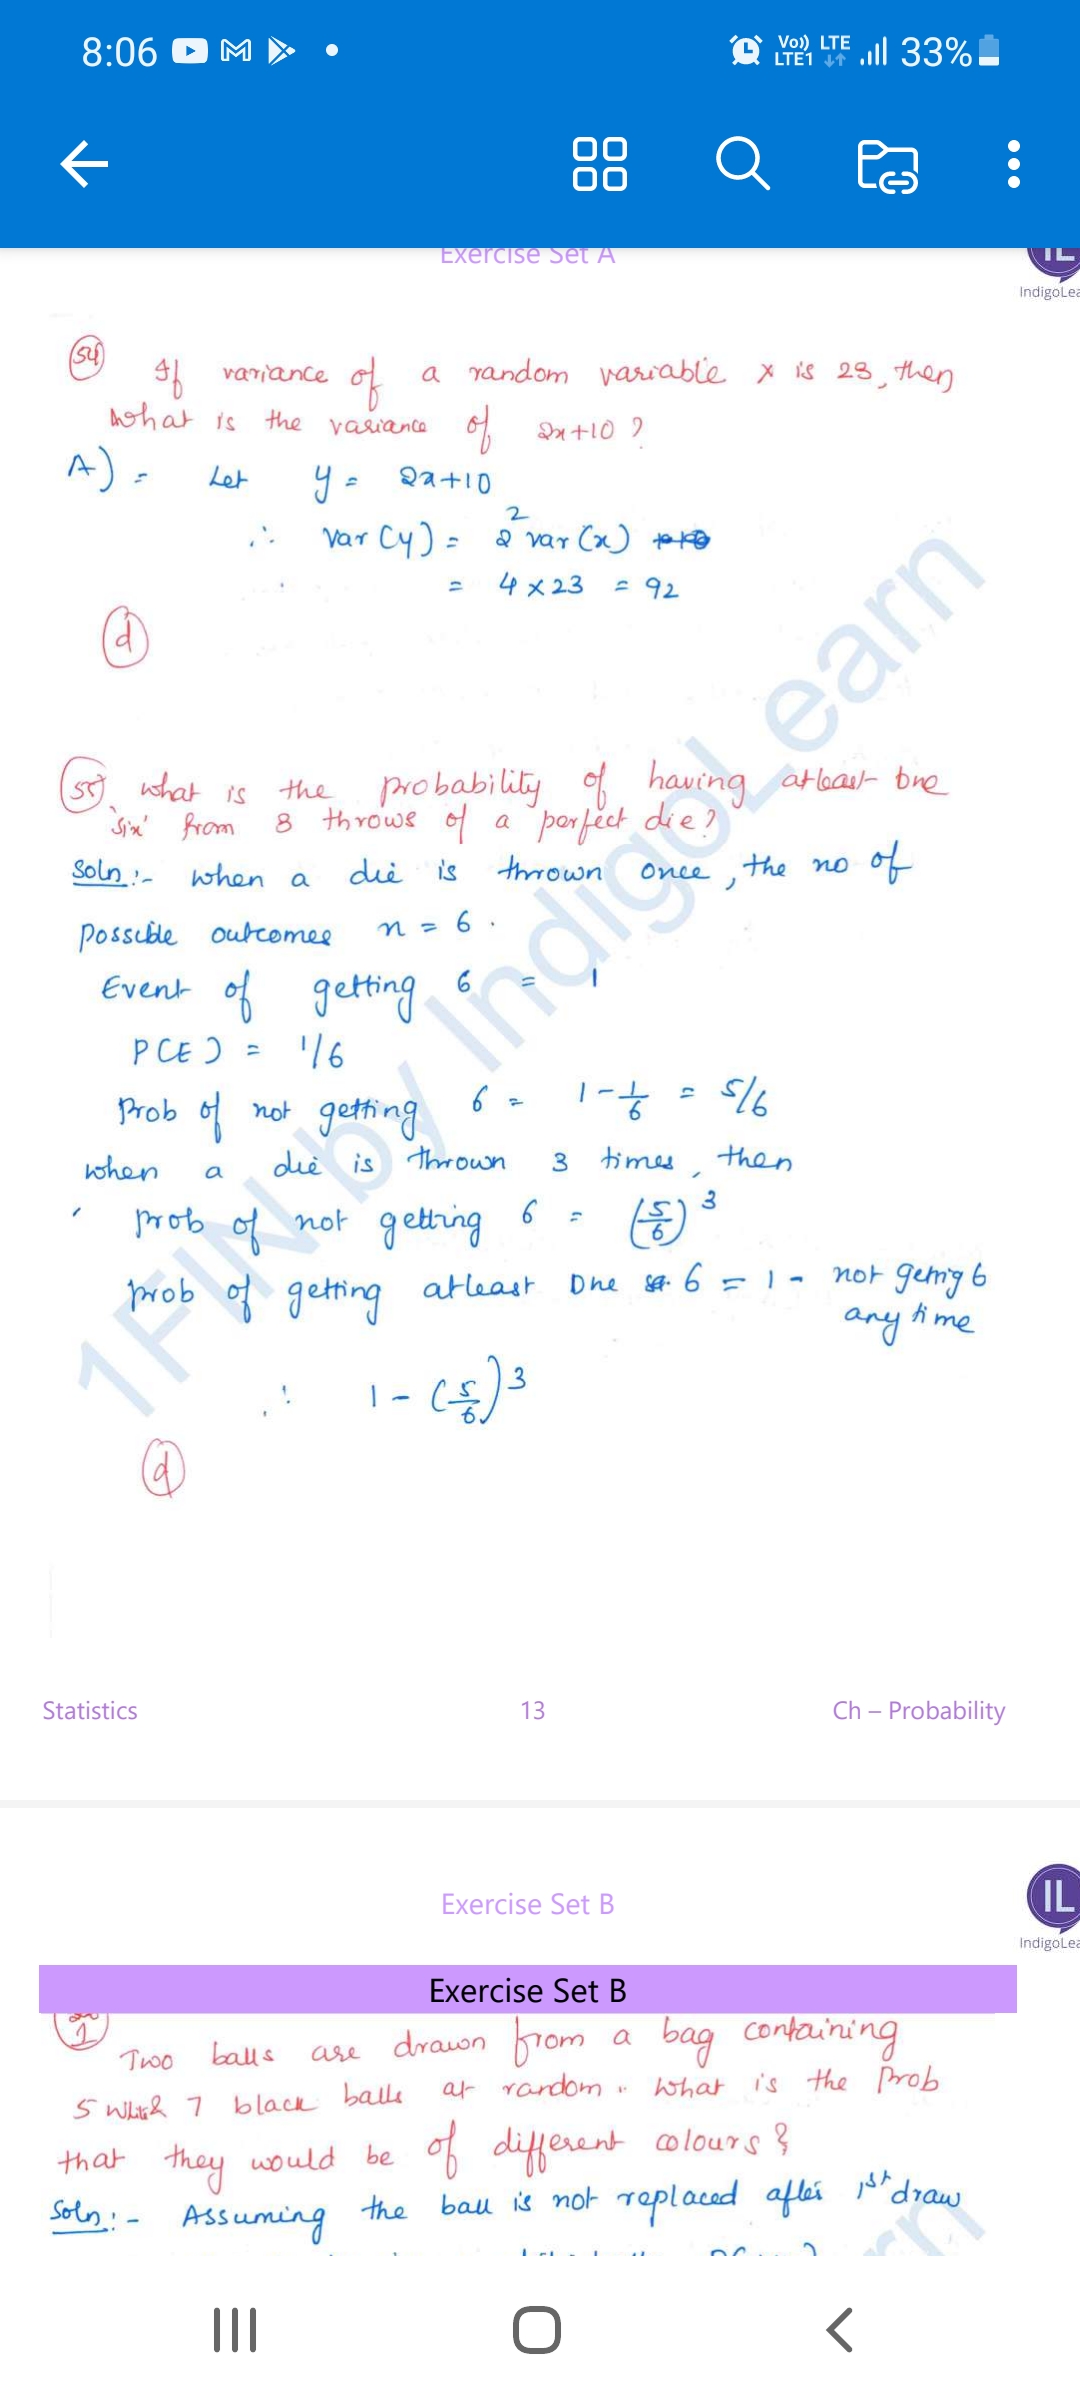 8:06
Vo)) LTE
LTE1
33%
Exercise Set A
IL
IndigoLea
54 If variance of a random variable x is 23, then
what is the variance of 2x+10 ?
A) = Let y = 2x+10
∴ Var (y) = 2² var (x)
= 4 × 23 = 92
d
55 what is the probability of having atleast one
'six' from 3 throws of a perfect die?
Soln :- when a die is thrown once, the no of
possible outcomes n = 6.
Event of getting 6 = 1
P(E) = 1/6
Prob of not getting 6 = 1 - 1/6 = 5/6
when a die is thrown 3 times, then
prob of not getting 6 = (5/6)³
prob of getting atleast One 6 = 1 - not getting 6
any time
∴ 1 - (5/6)³
d
1FIN by IndigoLearn
Statistics 13 Ch – Probability
Exercise Set B
IL
IndigoLea
Exercise Set B
1
Two balls are drawn from a bag containing
5 white & 7 black balls at random. What is the Prob
that they would be of different colours?
Soln :- Assuming the ball is not replaced after 1st draw